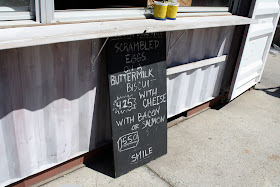 SCRAMBLED
EGGS
BUTTERMILK
BISCUIT
425 WITH CHEESE
WITH BACON
OR SALMON
SMILE